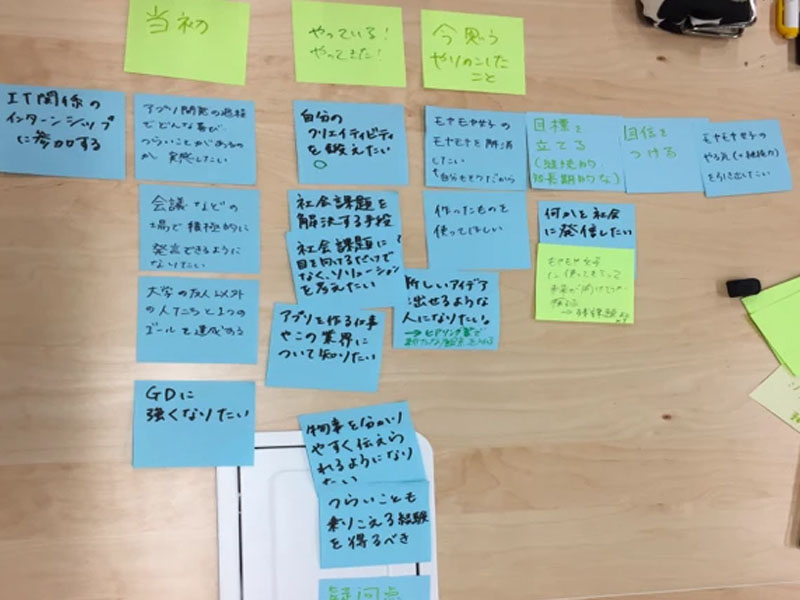 当初
やっている!
やってきた!
今思う
やりのこした
こと
IT関係の
インターンシップ
に参加する
アプリ開発の過程
でどんな喜び
つらいことがあるの
か実感したい
自分の
クリエイティビティ
を鍛えたい
モヤモヤ女子の
モヤモヤを解消
したい
目標を
立てる
(継続的・
短長期的な)
自信を
つける
モヤモヤ女子の
を引き出したい
会議などの
場で積極的に
発言できるように
なりたい
社会課題を
解決する手段
作ったものを
使ってほしい
何かを社会
に発信したい
社会課題に
目を向けるだけで
なく、ソリューション
を考えたい
モヤモヤ女子
に使ってもらって
大学の友人以外
の人たちと1つの
ゴールを達成する
アプリを作る仕事
やこの業界に
ついて知りたい
新しいアイデア
出せるような
人になりたい。
GDに
強くなりたい
物事を分かり
やすく伝えら
れるようになり
たい
つらいことも
乗りこえる経験
を得るべき
疑問点